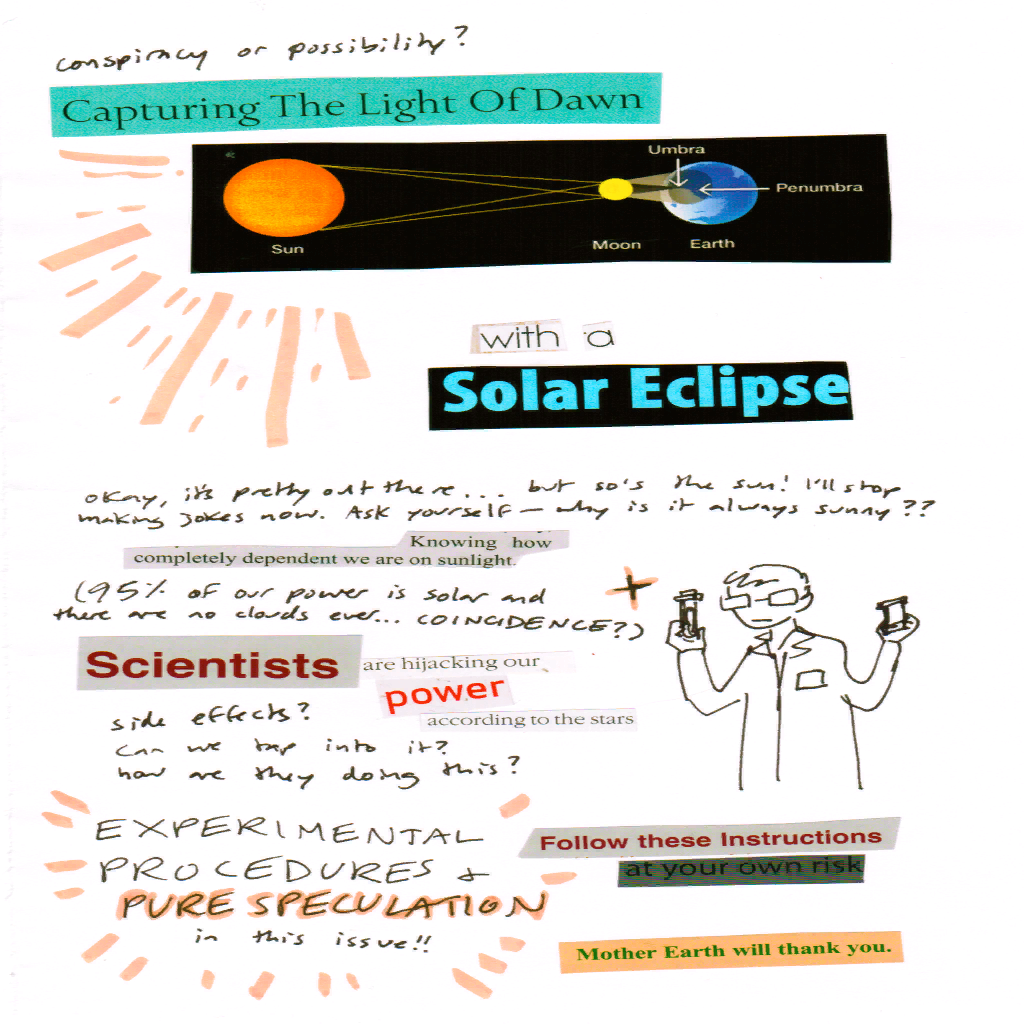 conspiracy or possibility?
Capturing The Light Of Dawn
Umbra
Penumbra
Sun
Moon
Earth
with a
Solar Eclipse
okay, it's pretty out there... but so's the sun! I'll stop
making jokes now. Ask yourself — why is it always sunny??
Knowing how
completely dependent we are on sunlight.
(95% of our power is solar and
there are no clouds ever... COINCIDENCE?)
+
Scientists
are hijacking our
power
according to the stars
side effects?
can we tap into it?
how are they doing this?
EXPERIMENTAL
PROCEDURES +
PURE SPECULATION
in this issue!!
Follow these Instructions
at your own risk
Mother Earth will thank you.